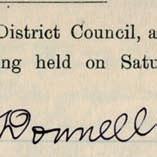 District Council, a
ng held on Satu
Donnell